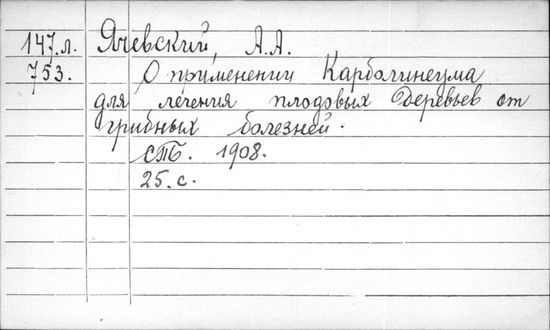 147.л. Ячевский, А.А.
753. О применении Карболинеума
для лечения плодовых деревьев от
грибных болезней.
СПб. 1908.
25. с.